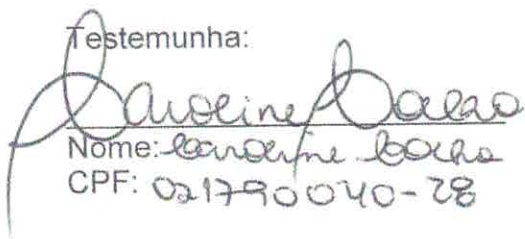 Testemunha:
Caroline
Nome: Caroline
CPF: 021790040-28